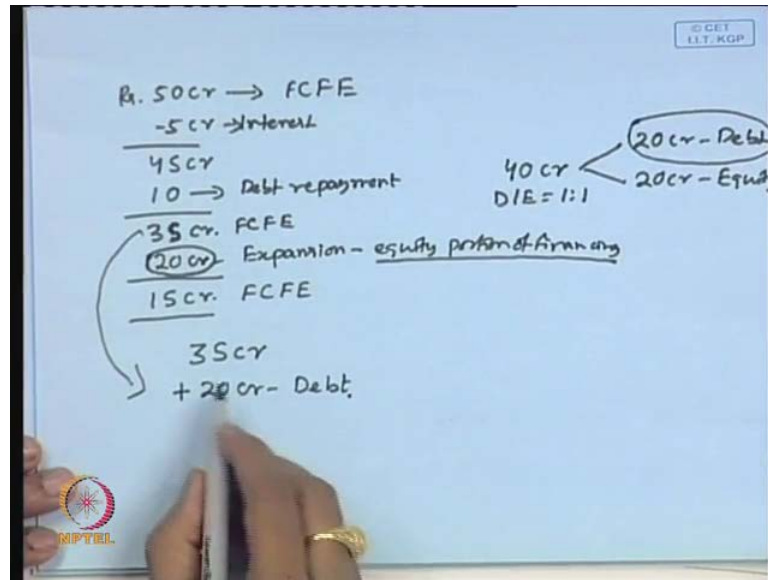 © CET
I.I.T. KGP
Rs. 50 Cr → FCFE
-5 Cr → Interest
45 Cr
10 → Debt repayment
35 Cr. FCFE
20 Cr Expansion - equity portion of financing
15 Cr. FCFE
40 Cr
D/E = 1:1
20 Cr - Debt
20 Cr - Equity
35 Cr
+ 20 Cr - Debt.
NPTEL